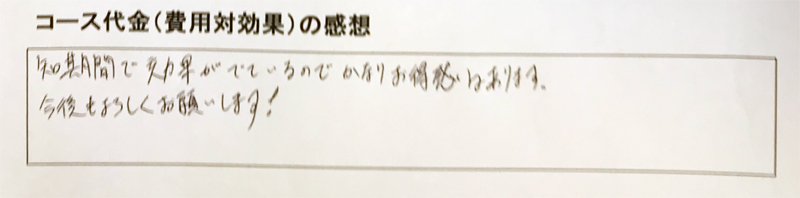 コース代金(費用対効果)の感想
短期間で効果がでているのでかなりお得感はあります。
今後もよろしくお願いします!